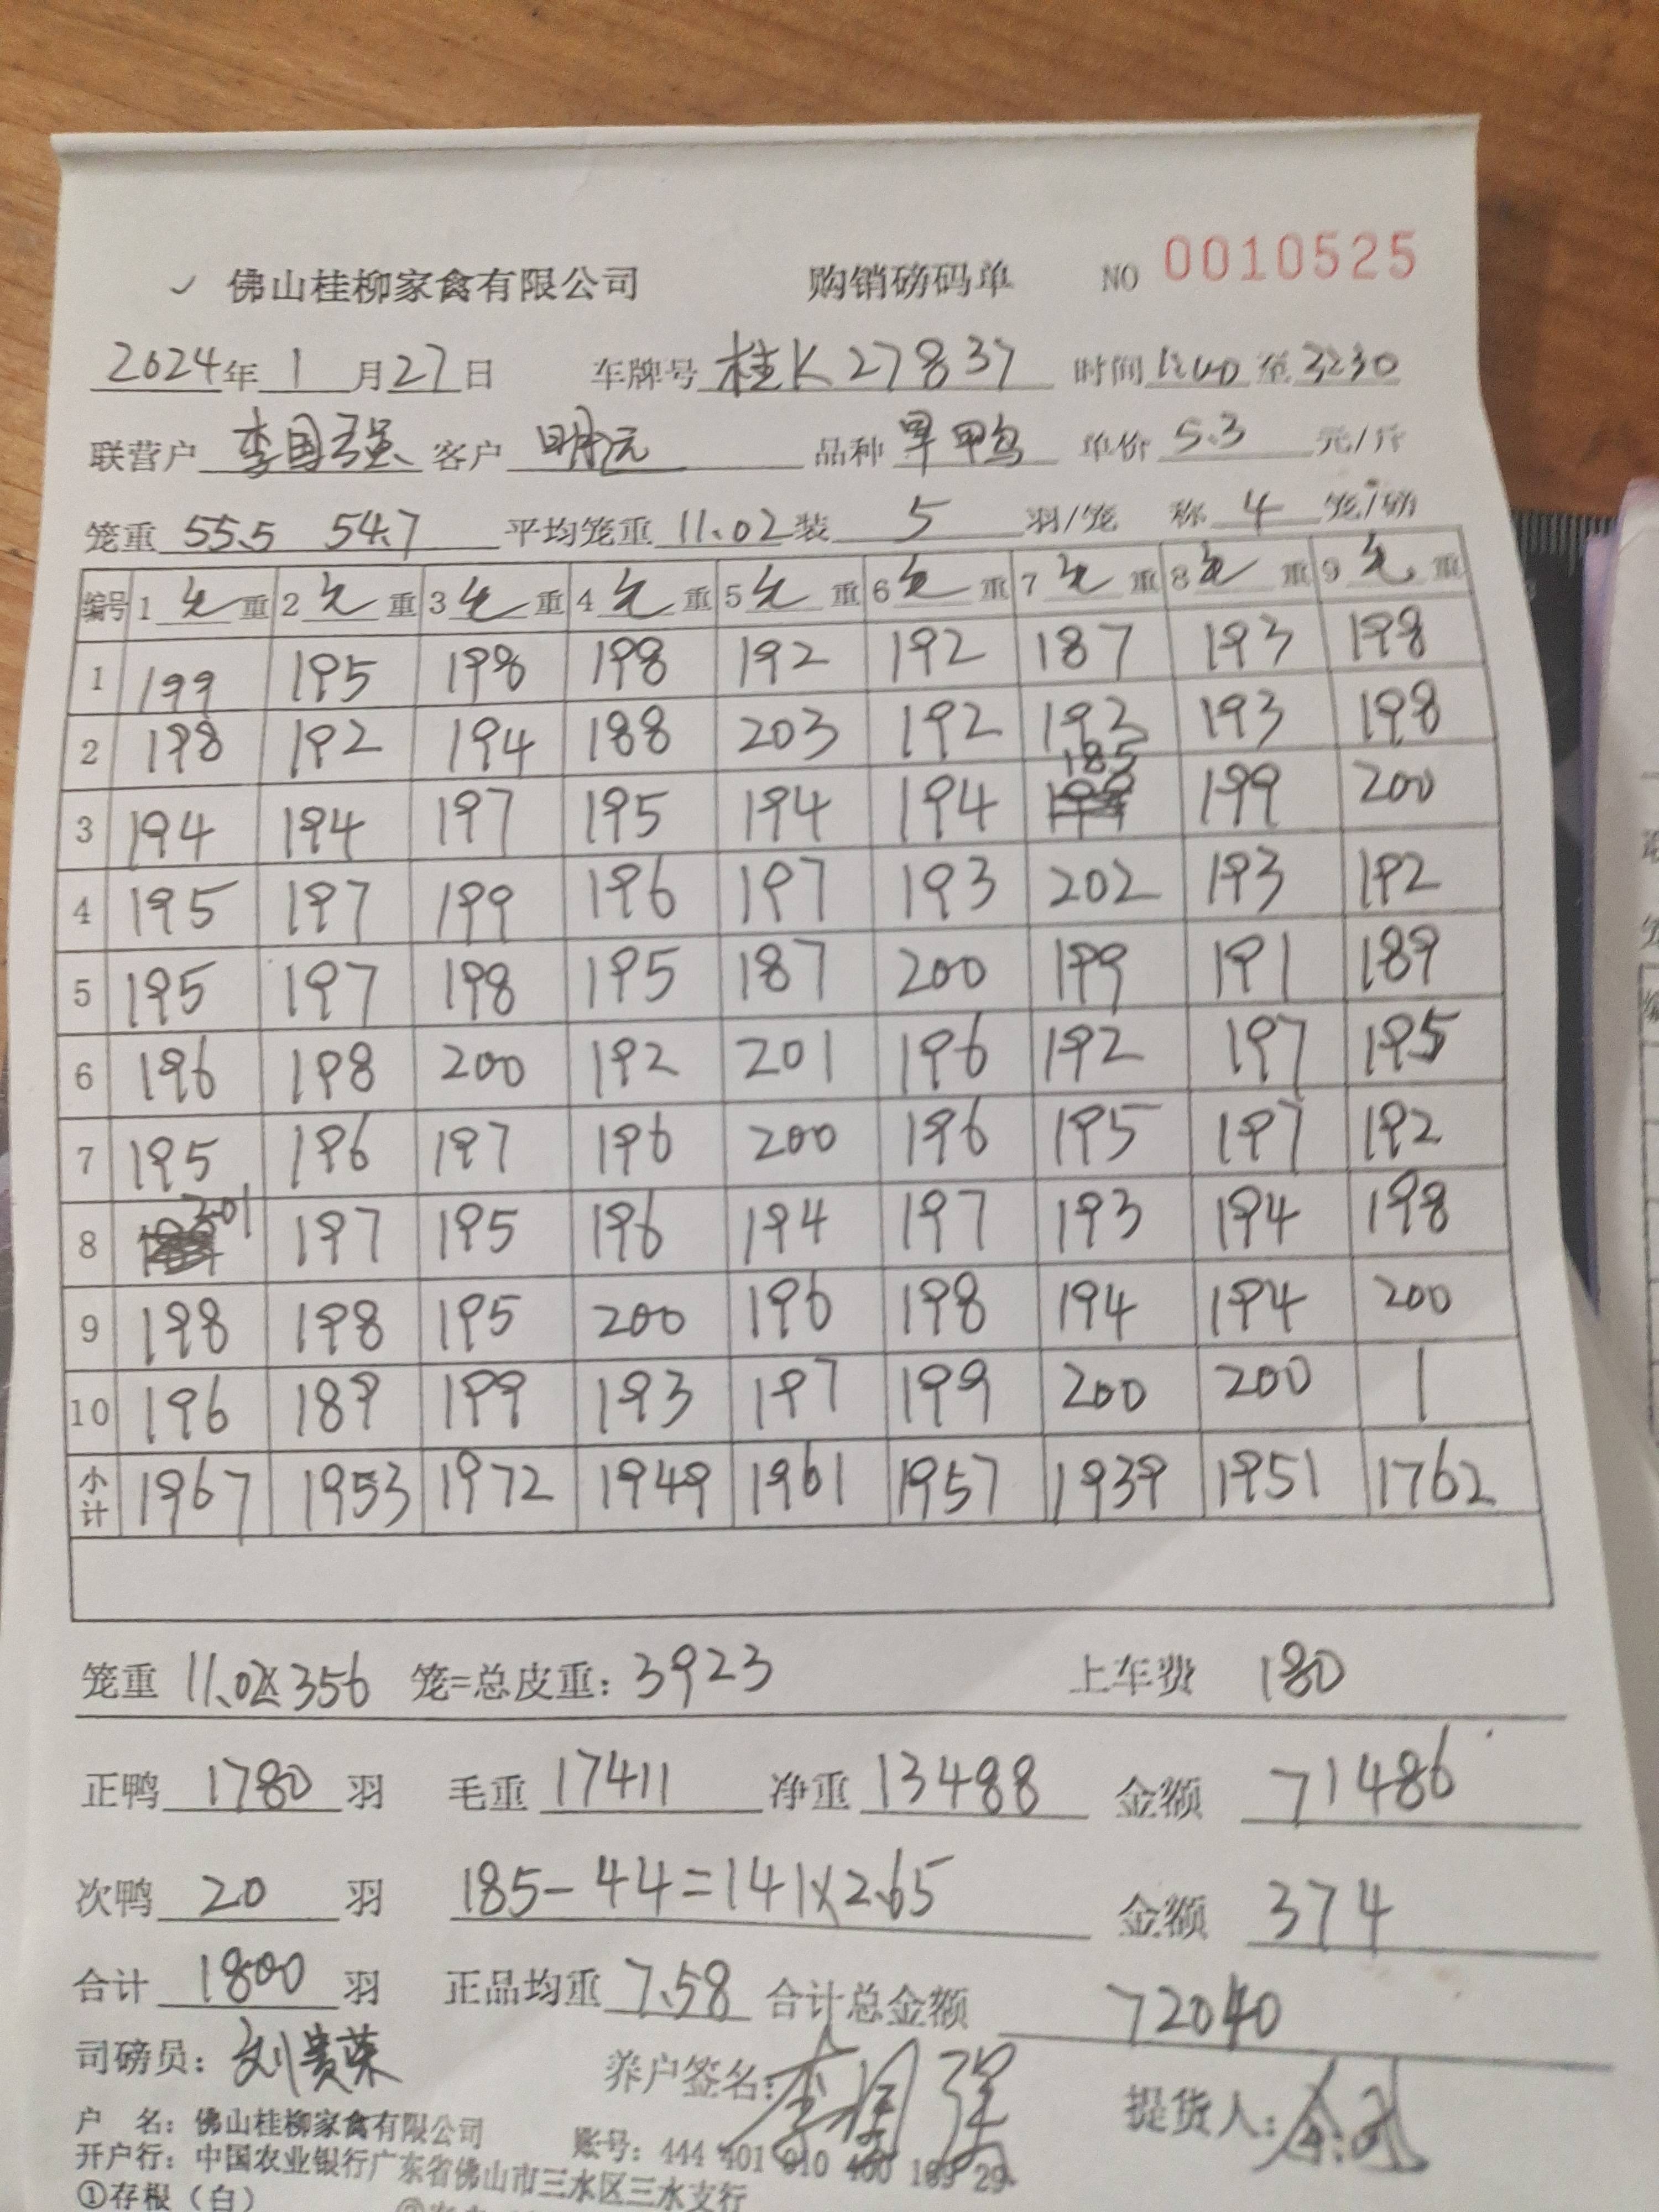 佛山桂柳家禽有限公司 购销磅码单 NO 0010525
2024年 1 月 27 日 车牌号 桂K27837 时间 至
联营户 李国强 客户 明远 品种 旱鸭 单价 5.3 元/斤
笼重 55.5 54.7 平均笼重 11.02 装 5 羽/笼 称 4 笼/磅
编号 1 毛 重 2 毛 重 3 毛 重 4 毛 重 5 毛 重 6 毛 重 7 毛 重 8 毛 重 9 毛 重
1 199 195 198 198 192 192 187 193 198
2 198 192 194 188 203 192 192 193 198
3 194 194 197 195 194 194 185 199 200
4 195 197 199 196 197 193 202 193 192
5 195 197 198 195 187 200 199 191 189
6 196 198 200 192 201 196 192 197 195
7 195 196 197 196 200 196 195 197 192
8 201 197 195 196 194 197 193 194 198
9 198 198 195 200 196 198 194 194 200
10 196 189 199 193 197 199 200 200 1
小计 1967 1953 1972 1949 1961 1957 1939 1951 1762
笼重 11.02x356 笼=总皮重: 3923 上车费 180
正鸭 1780 羽 毛重 17411 净重 13488 金额 71486
次鸭 20 羽 185-44=141x2.65 金额 374
合计 1800 羽 正品均重 7.58 合计总金额 72040
司磅员: 刘贵荣 养户签名: 李国强 提货人:
户 名: 佛山桂柳家禽有限公司 账号: 444 401 010 400 169 29
开户行: 中国农业银行广东省佛山市三水区三水支行
①存根（白）